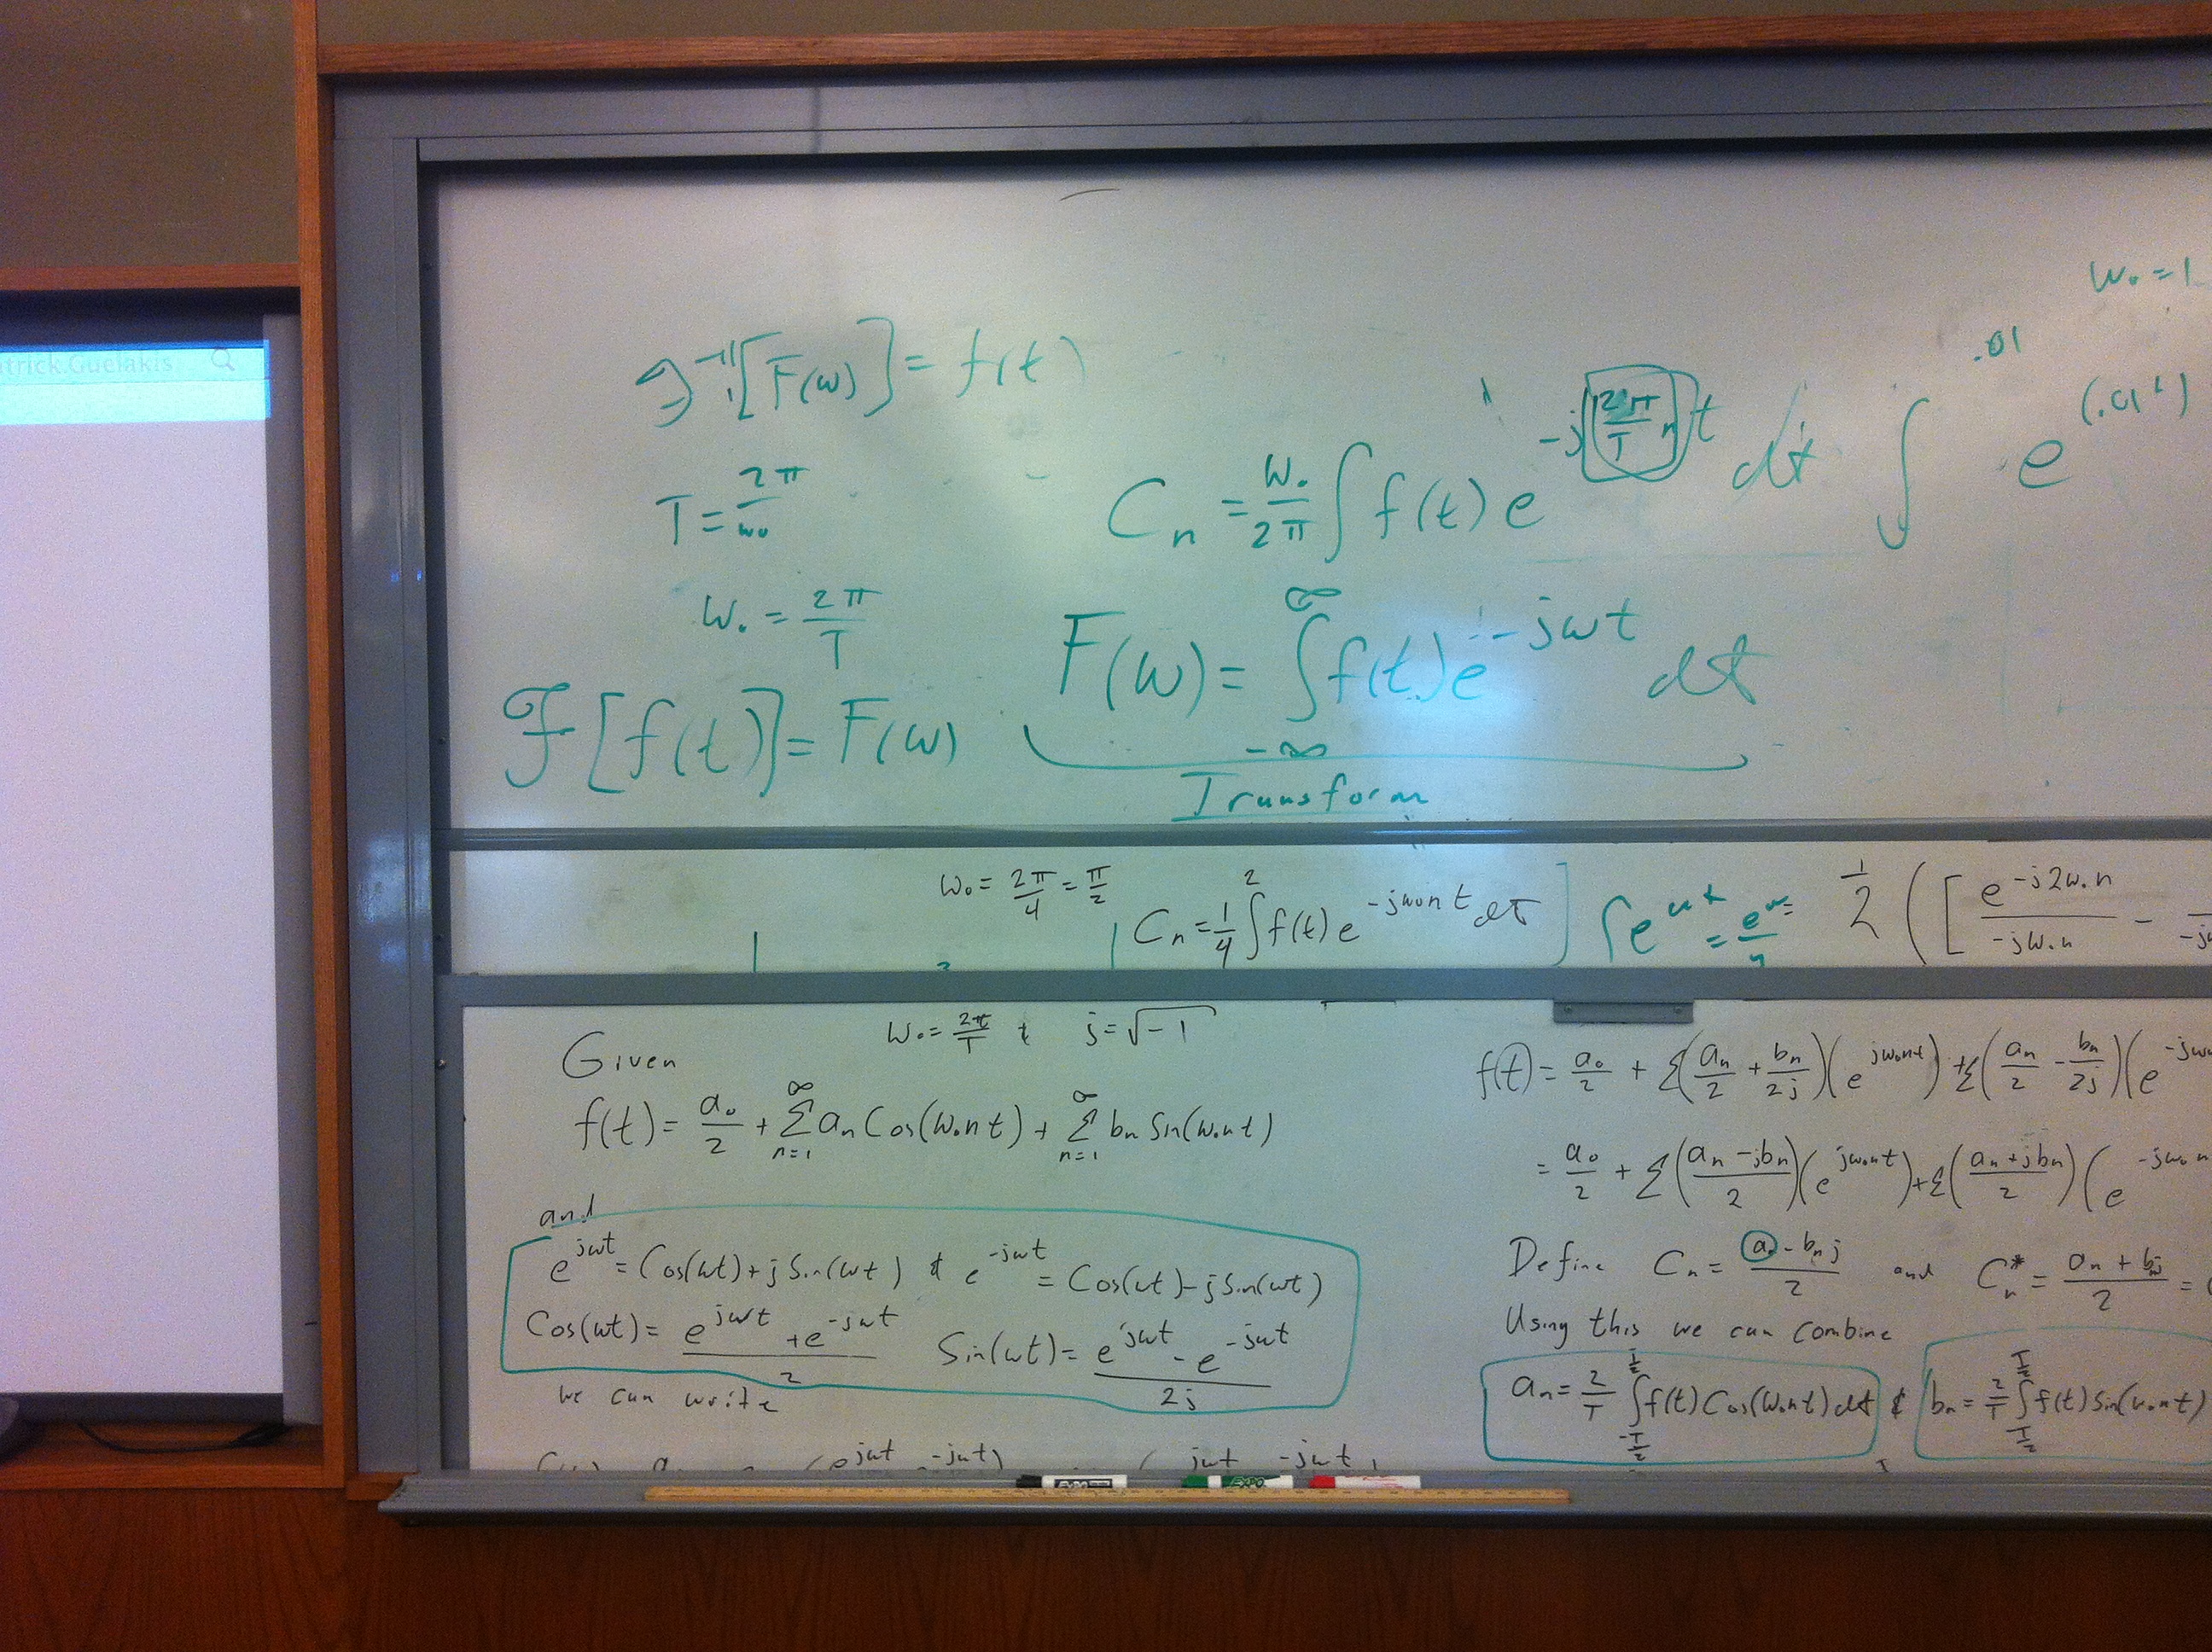 trick.Guelakis
W₀ = 1
ℱ⁻¹[F(w)] = f(t)
.01
T = 2π/w₀
Cₙ = W₀/2π ∫ f(t) e^(-j(2π/T n)t) dt
∫ e^(.01
W₀ = 2π/T
F(w) = ∫_{-∞}^{∞} f(t) e^(-jwt) dt
ℱ[f(t)] = F(w)
Transform
w₀ = 2π/4 = π/2
Cₙ = 1/4 ∫² f(t) e^(-jw₀nt) dt ]
= 1/2 ([ e^(-j2w₀n)/(-jw₀n) -
Given
W₀ = 2π/T & j = √-1
f(t) = a₀/2 + ∑_{n=1}^{∞} aₙ Cos(w₀nt) + ∑_{n=1}^{∞} bₙ Sin(w₀nt)
and
e^(jwt) = Cos(wt) + j Sin(wt) & e^(-jwt) = Cos(wt) - j Sin(wt)
Cos(wt) = (e^(jwt) + e^(-jwt))/2 Sin(wt) = (e^(jwt) - e^(-jwt))/2j
we can write
f(t) = a₀/2 + ∑(aₙ/2 + bₙ/2j)(e^(jw₀nt)) + ∑(aₙ/2 - bₙ/2j)(e^(-jw₀
= a₀/2 + ∑((aₙ - jbₙ)/2)(e^(jw₀nt)) + ∑((aₙ + jbₙ)/2)(e^(-jw₀n
Define Cₙ = (aₙ - bₙj)/2 and Cₙ* = (aₙ + bₙj)/2 =
Using this we can combine
aₙ = 2/T ∫_{-T/2}^{T/2} f(t) Cos(w₀nt) dt & bₙ = 2/T ∫_{T/2}^{T/2} f(t) Sin(w₀nt)
EXPO